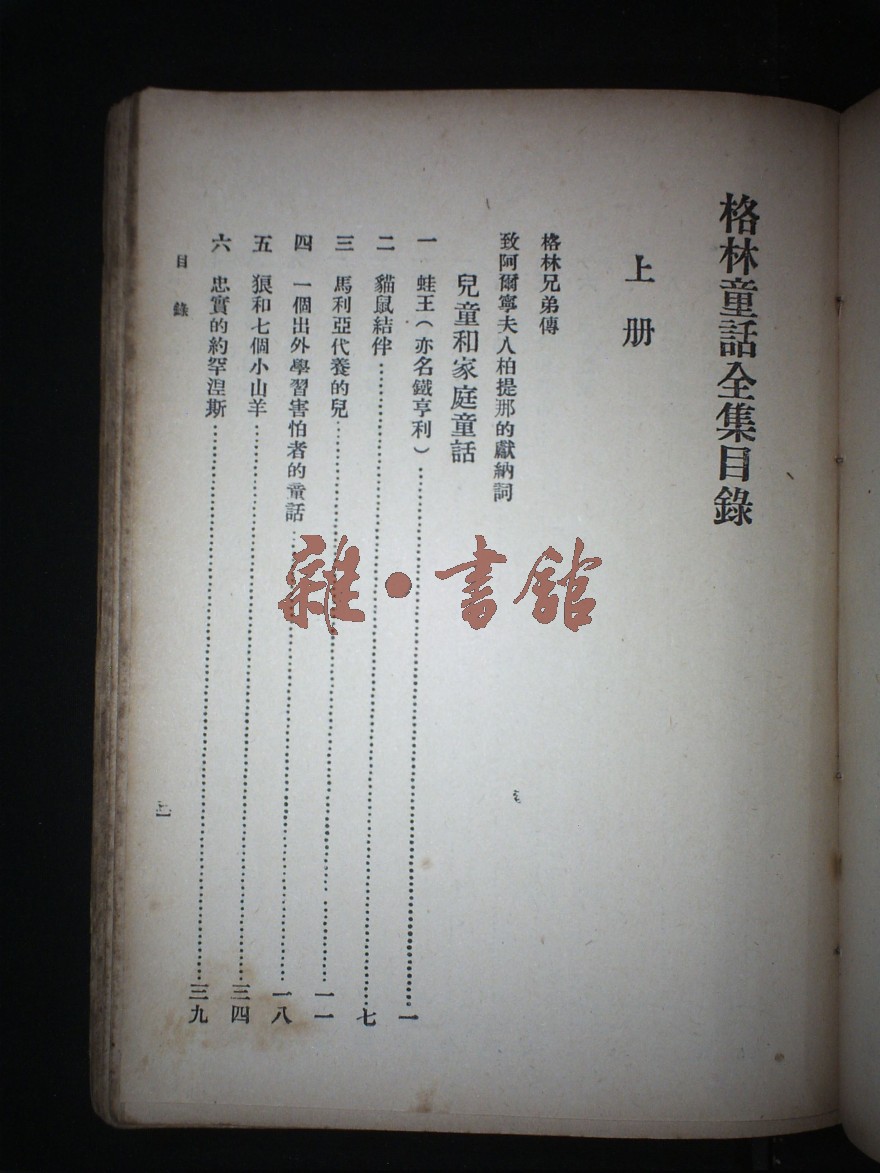 格林童話全集目錄
上册
格林兄弟傳
致阿爾寧夫人柏提那的獻納詞
兒童和家庭童話
一 蛙王（亦名鐵亨利）…………一
二 貓鼠結伴…………七
三 馬利亞代養的兒…………一一
四 一個出外學習害怕者的童話…………一八
五 狼和七個小山羊…………三四
六 忠實的約罕湼斯…………三九
目錄
雜·書館